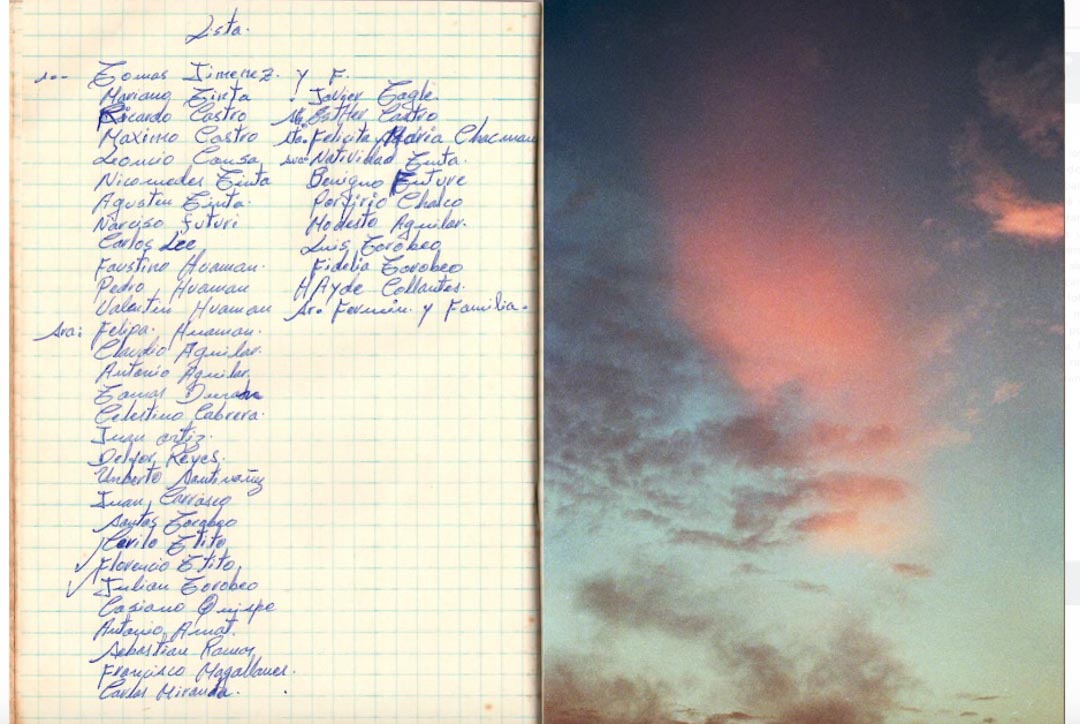 Lista.
Tomas Jimenez. y F.
Mariano Tinta
Ricardo Castro
Maximo Castro
Leoncio Causa
Nicomedes Tinta
Agustin Tinta.
Narciso futuri
Carlos Lee
Faustino Huaman.
Pedro Huaman
Valentin Huaman
Sra: Felipa. Huaman.
Claudio Aguilar.
Antonio Aguilar.
Tomas Duran
Celestino Cabrera.
Juan ortiz.
Delfor Reyes.
Unberto
Juan Carrasco
Santos Torobeo
Cirilo Etito
Florencio Etito
Julian Torobeo
Casiano Quispe
Antonio Arnat.
Sebastian Ramos
Francisco Magallanes.
Carlos Miranda.
Javier Tagle.
Esther Castro
Sta. Felicita Maria Chacman
Sra Natividad Tinta.
Benigno Future
Porfirio Chalco
Modesto Aguilar.
Luis Torobeo
Fidelia Torobeo
HAyde Collantes.
Sr. Fermin. y Familia.